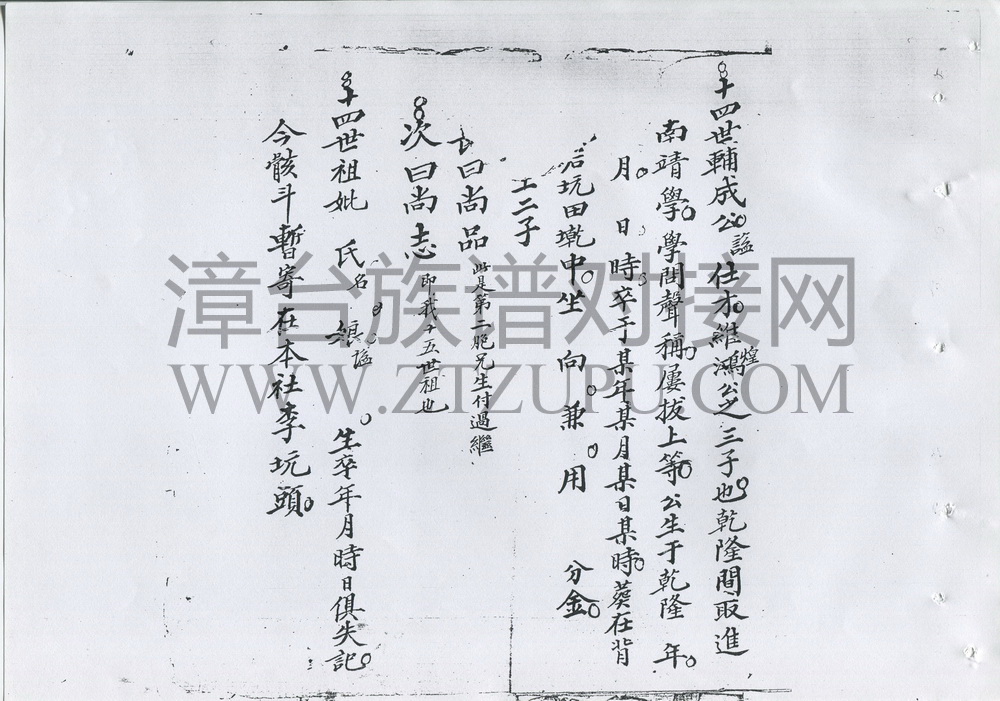 十四世輔成公謚仕才維鴻煌公之三子也乾隆間取進
南靖學學問聲稱屢拔上等公生于乾隆 年
月 日 時卒于某年某月某日某時葬在背
坑田墘中坐 向 兼 用 分金
二子
長曰尚品此是第二胞兄生付過繼
次曰尚志即我十五世祖也
十四世祖妣 氏名 謚 生卒年月時日俱失記
今骸斗暫寄在本社李坑頭
漳台族谱对接网
WWW.ZTZUPU.COM